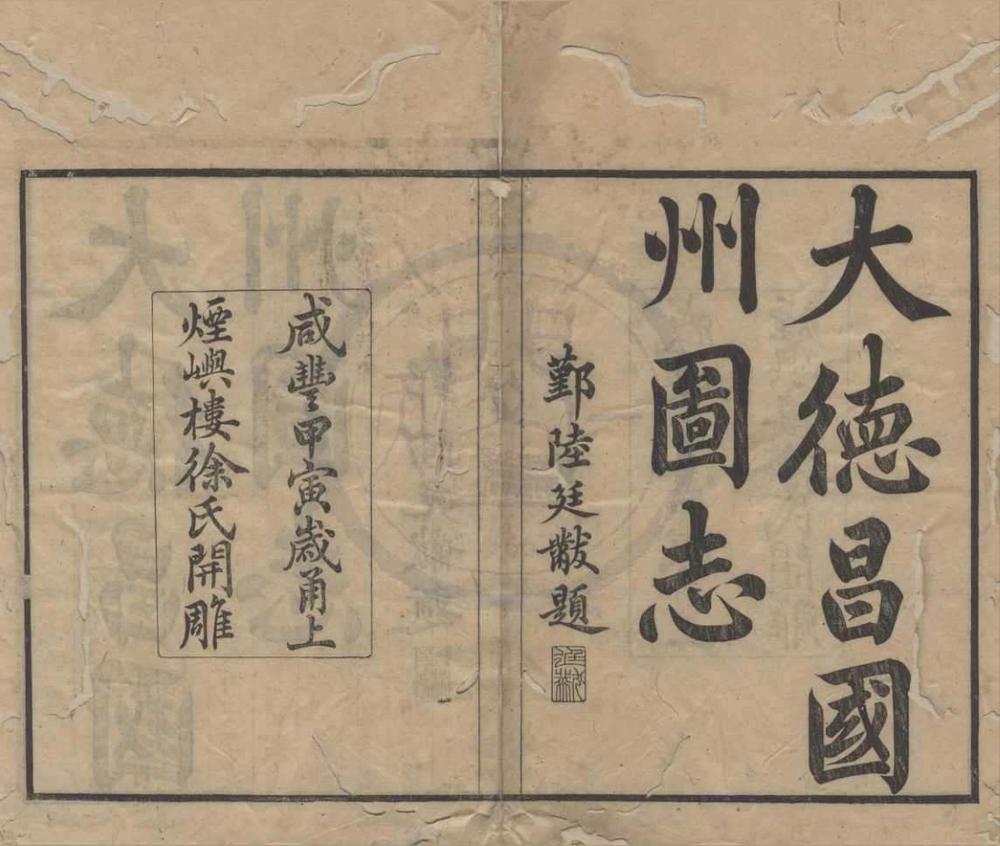 大德昌國
州圖志
鄞陸廷黻題
廷黻
咸豐甲寅歲甬上
煙嶼樓徐氏開雕